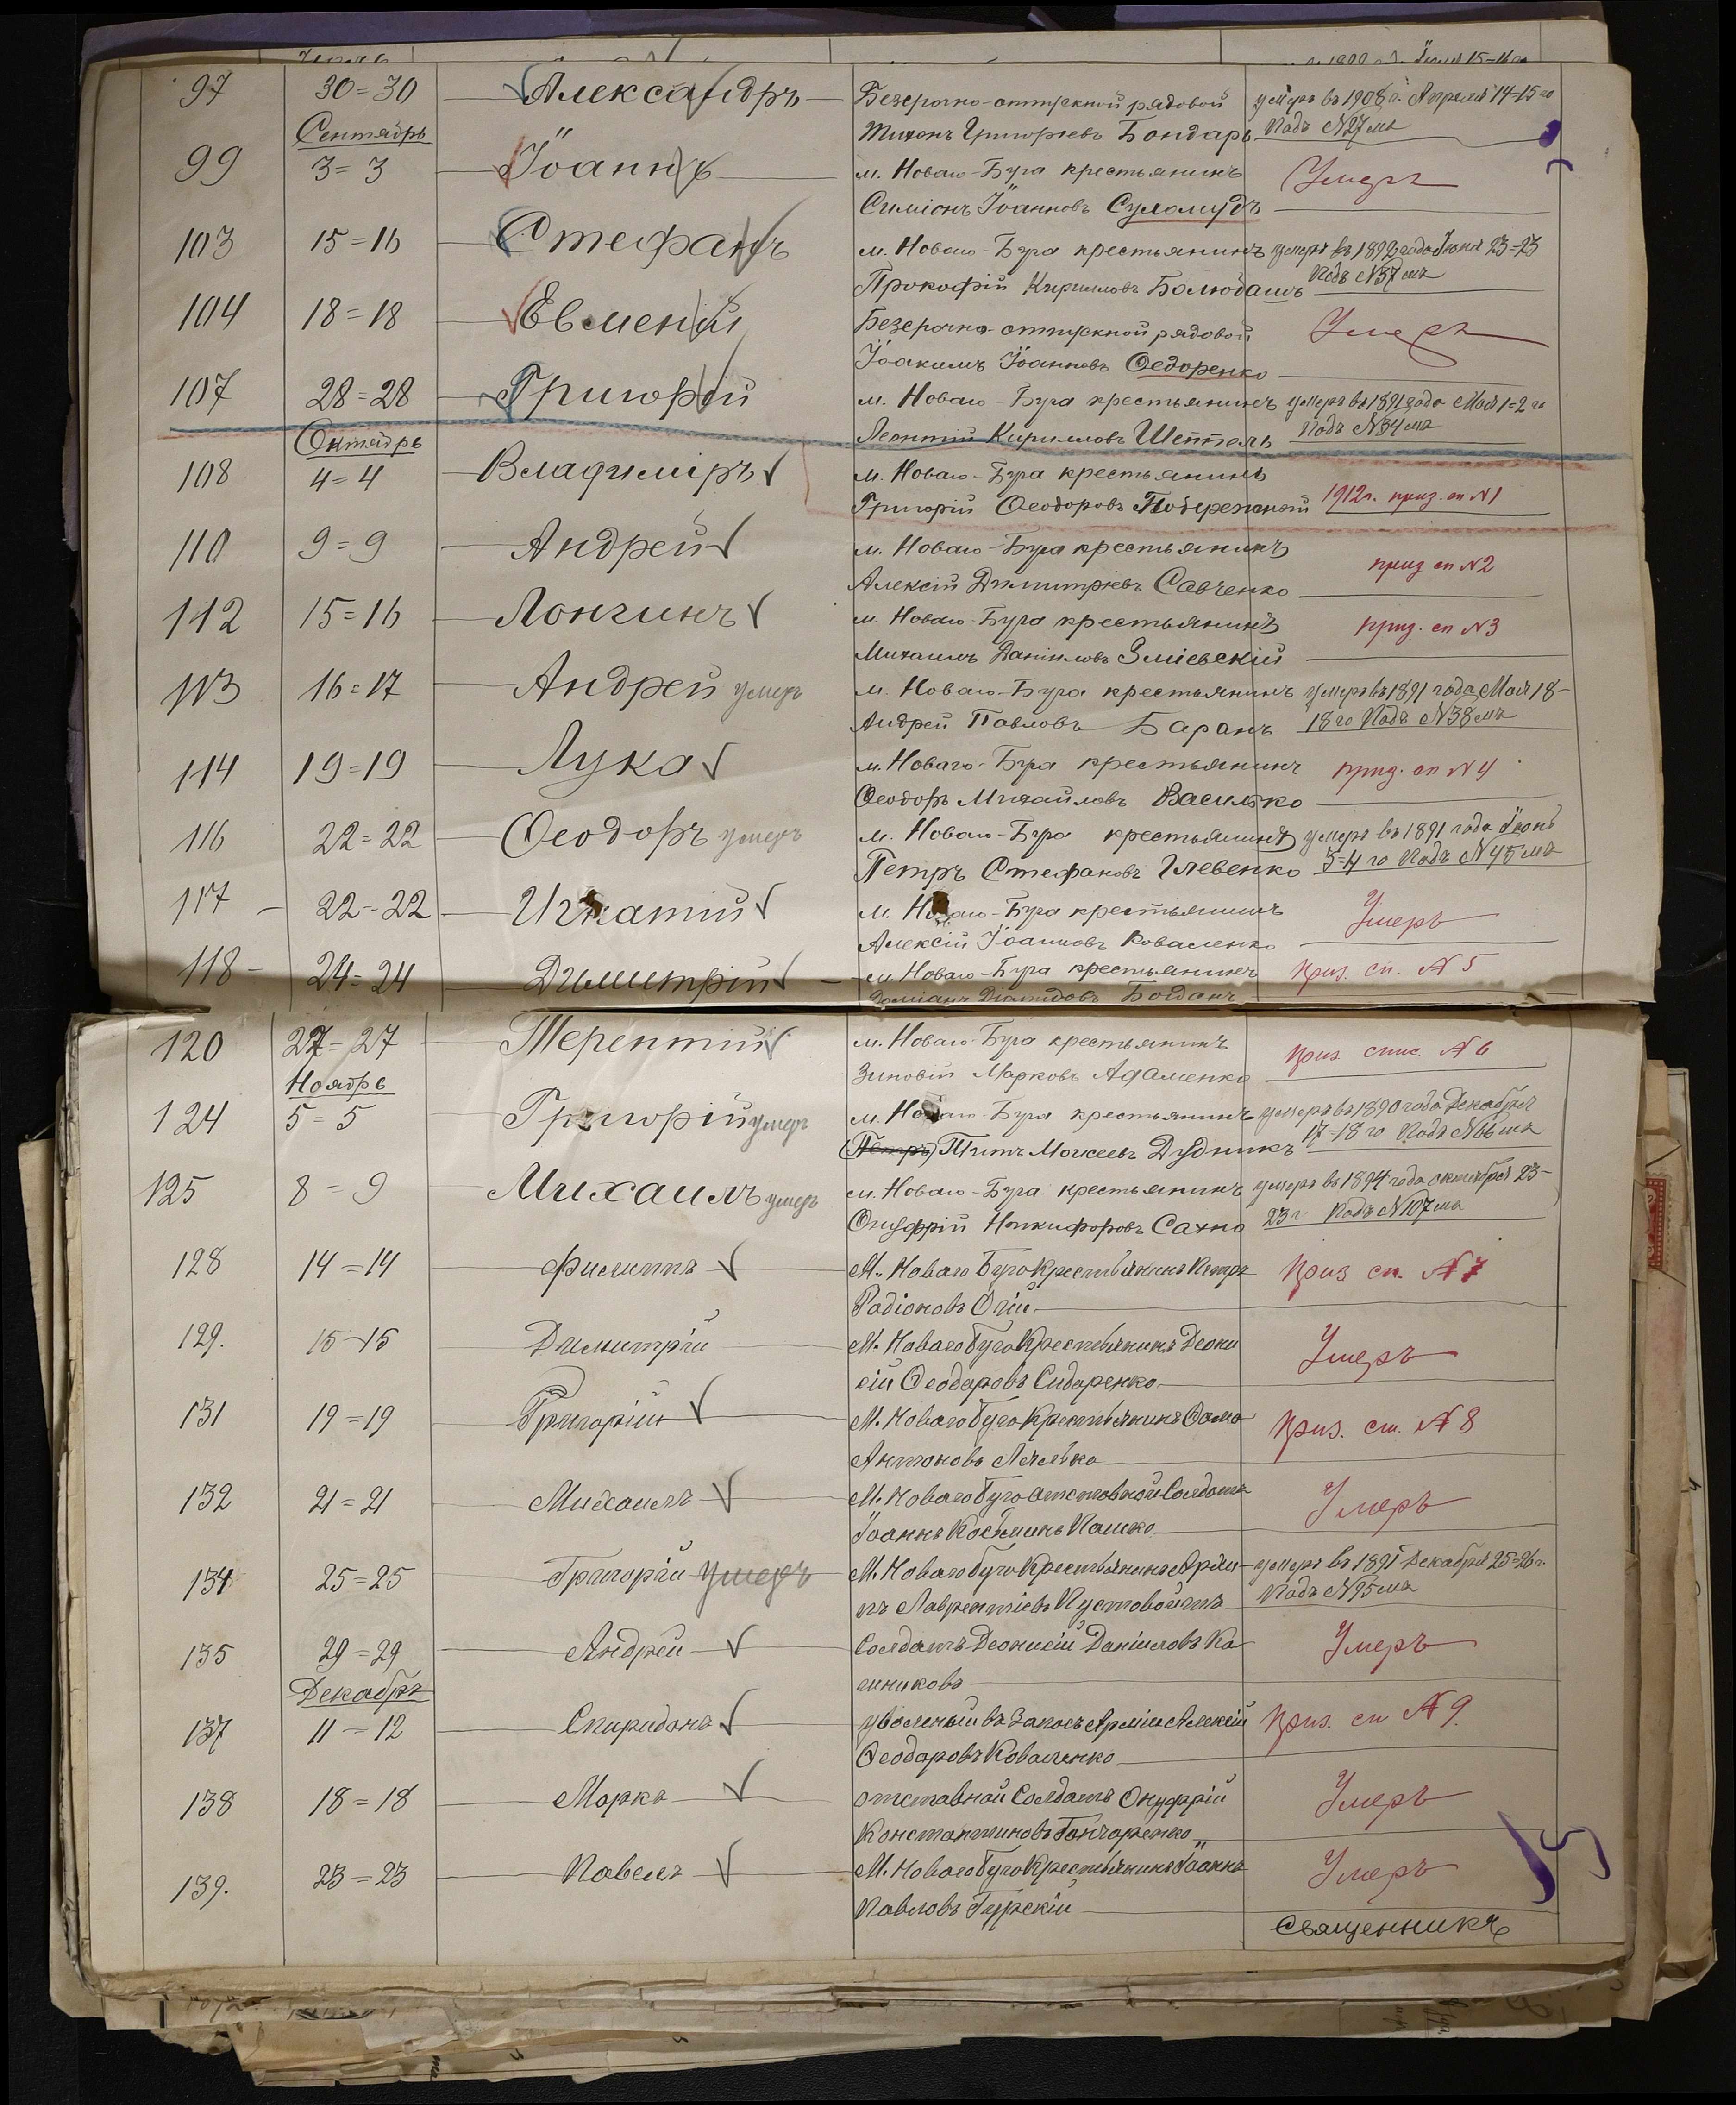 97 30=30 Александръ Безсрочно-отпускной рядовой умеръ въ 1908 г. Апреля 14-15 го
Сентябрь Тихонъ Григорьевъ Бондарь Подъ №27мъ
99 3=3 Іоаннъ м. Новаго-Буга крестьянинъ Умеръ
Симіонъ Іоанновъ
103 15=16 Стефанъ м. Новаго-Буга крестьянинъ умеръ въ 1892 года Іюня 23=23
Прокофій Кириловъ Подъ №57мъ
104 18=18 Евменій Безсрочно-отпускной рядовой Умеръ
Іоакимъ Іоанновъ Ѳедоренко
107 28=28 Григорій м. Новаго-Буга крестьянинъ умеръ въ 1891 года Мая 1=2 го
Октябрь Леонтій Кириловъ Шептель Подъ №34мъ
108 4=4 Владиміръ м. Новаго-Буга крестьянинъ
Григорій Ѳеодоровъ Побережный 1912г. приз. сп №1
110 9=9 Андрей м. Новаго-Буга крестьянинъ приз сп №2
Алексій Димитріевъ Савченко
112 15=16 Лонгинъ м. Новаго-Буга крестьянинъ приз. сп №3
Михаилъ Даніиловъ Зміевскій
113 16=17 Андрей умеръ м. Новаго-Буга крестьянинъ умеръ въ 1891 года Мая 18-
Андрей Павловъ Баранъ 18го Подъ №38мъ
114 19=19 Лука м. Новаго-Буга крестьянинъ приз. сп №4
Ѳеодоръ Михайловъ Василько
116 22=22 Ѳеодоръ умеръ м. Новаго-Буга крестьянинъ умеръ въ 1891 года Іюнь
Петръ Стефановъ Глевенко 3=4 го Подъ №45мъ
117 22=22 Игнатій м. Новаго-Буга крестьянинъ Умеръ
Алексій Іоанновъ Коваленко
118 24=24 Димитрій м. Новаго-Буга крестьянинъ приз. сп. №5
Даміанъ Діомидовъ Богданъ
120 27=27 Терентій м. Новаго-Буга крестьянинъ приз. спис. №6
Ноябрь Зиновій Марковъ Адаменко
124 5=5 Григорій умеръ м. Новаго-Буга крестьянинъ умеръ въ 1890 года Декабря
(Петръ) Титъ Моисеевъ Дудникъ 17=18 го Подъ №66мъ
125 8=9 Михаилъ умеръ м. Новаго-Буга крестьянинъ умеръ въ 1894 года октября 23-
Онуфрій Никифоровъ Сахно 23г Подъ №107мъ
128 14=14 Филиппъ М. Новаго Буга Крестьянинъ Петръ Приз сп. №7
Родіоновъ Огій
129. 15=15 Димитрій М. Новаго Буга Крестьянинъ Деони Умеръ
сій Ѳеодоровъ Сидаренко
131 19=19 Григорій М. Новаго Буга Крестьянинъ Ѳома Приз. сп. №8
Антоновъ
132 21=21 Михаилъ М. Новаго Буга отставной Солдатъ Умеръ
Іоаннъ Пашко
134 25=25 Григорій Умеръ М. Новаго Буга Крестьянинъ умеръ въ 1891 Декабря 25=26г.
Лаврентіевъ Пустовойтъ Подъ №95мъ
135 29=29 Андрей Солдатъ Деонисій Даніиловъ Ка Умеръ
Декабрь шниковъ
137 11=12 Спиридонъ уволеный въ Запасъ Арміи Алексій Приз. сп №9.
Ѳеодоровъ Коваленко
138 18=18 Марка отставной Солдатъ Онуфрій Умеръ
Константиновъ Гончаренко
139. 23=23 Павелъ М. Новаго Буга Крестьянинъ Іоаннъ Умеръ
Павловъ Гурскій
Священникъ